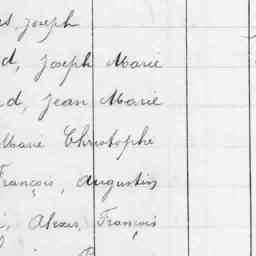 s, Joseph
d, Joseph Marie
d, Jean Marie
Marie Christophe
François, Augustin
i, Alexis, François